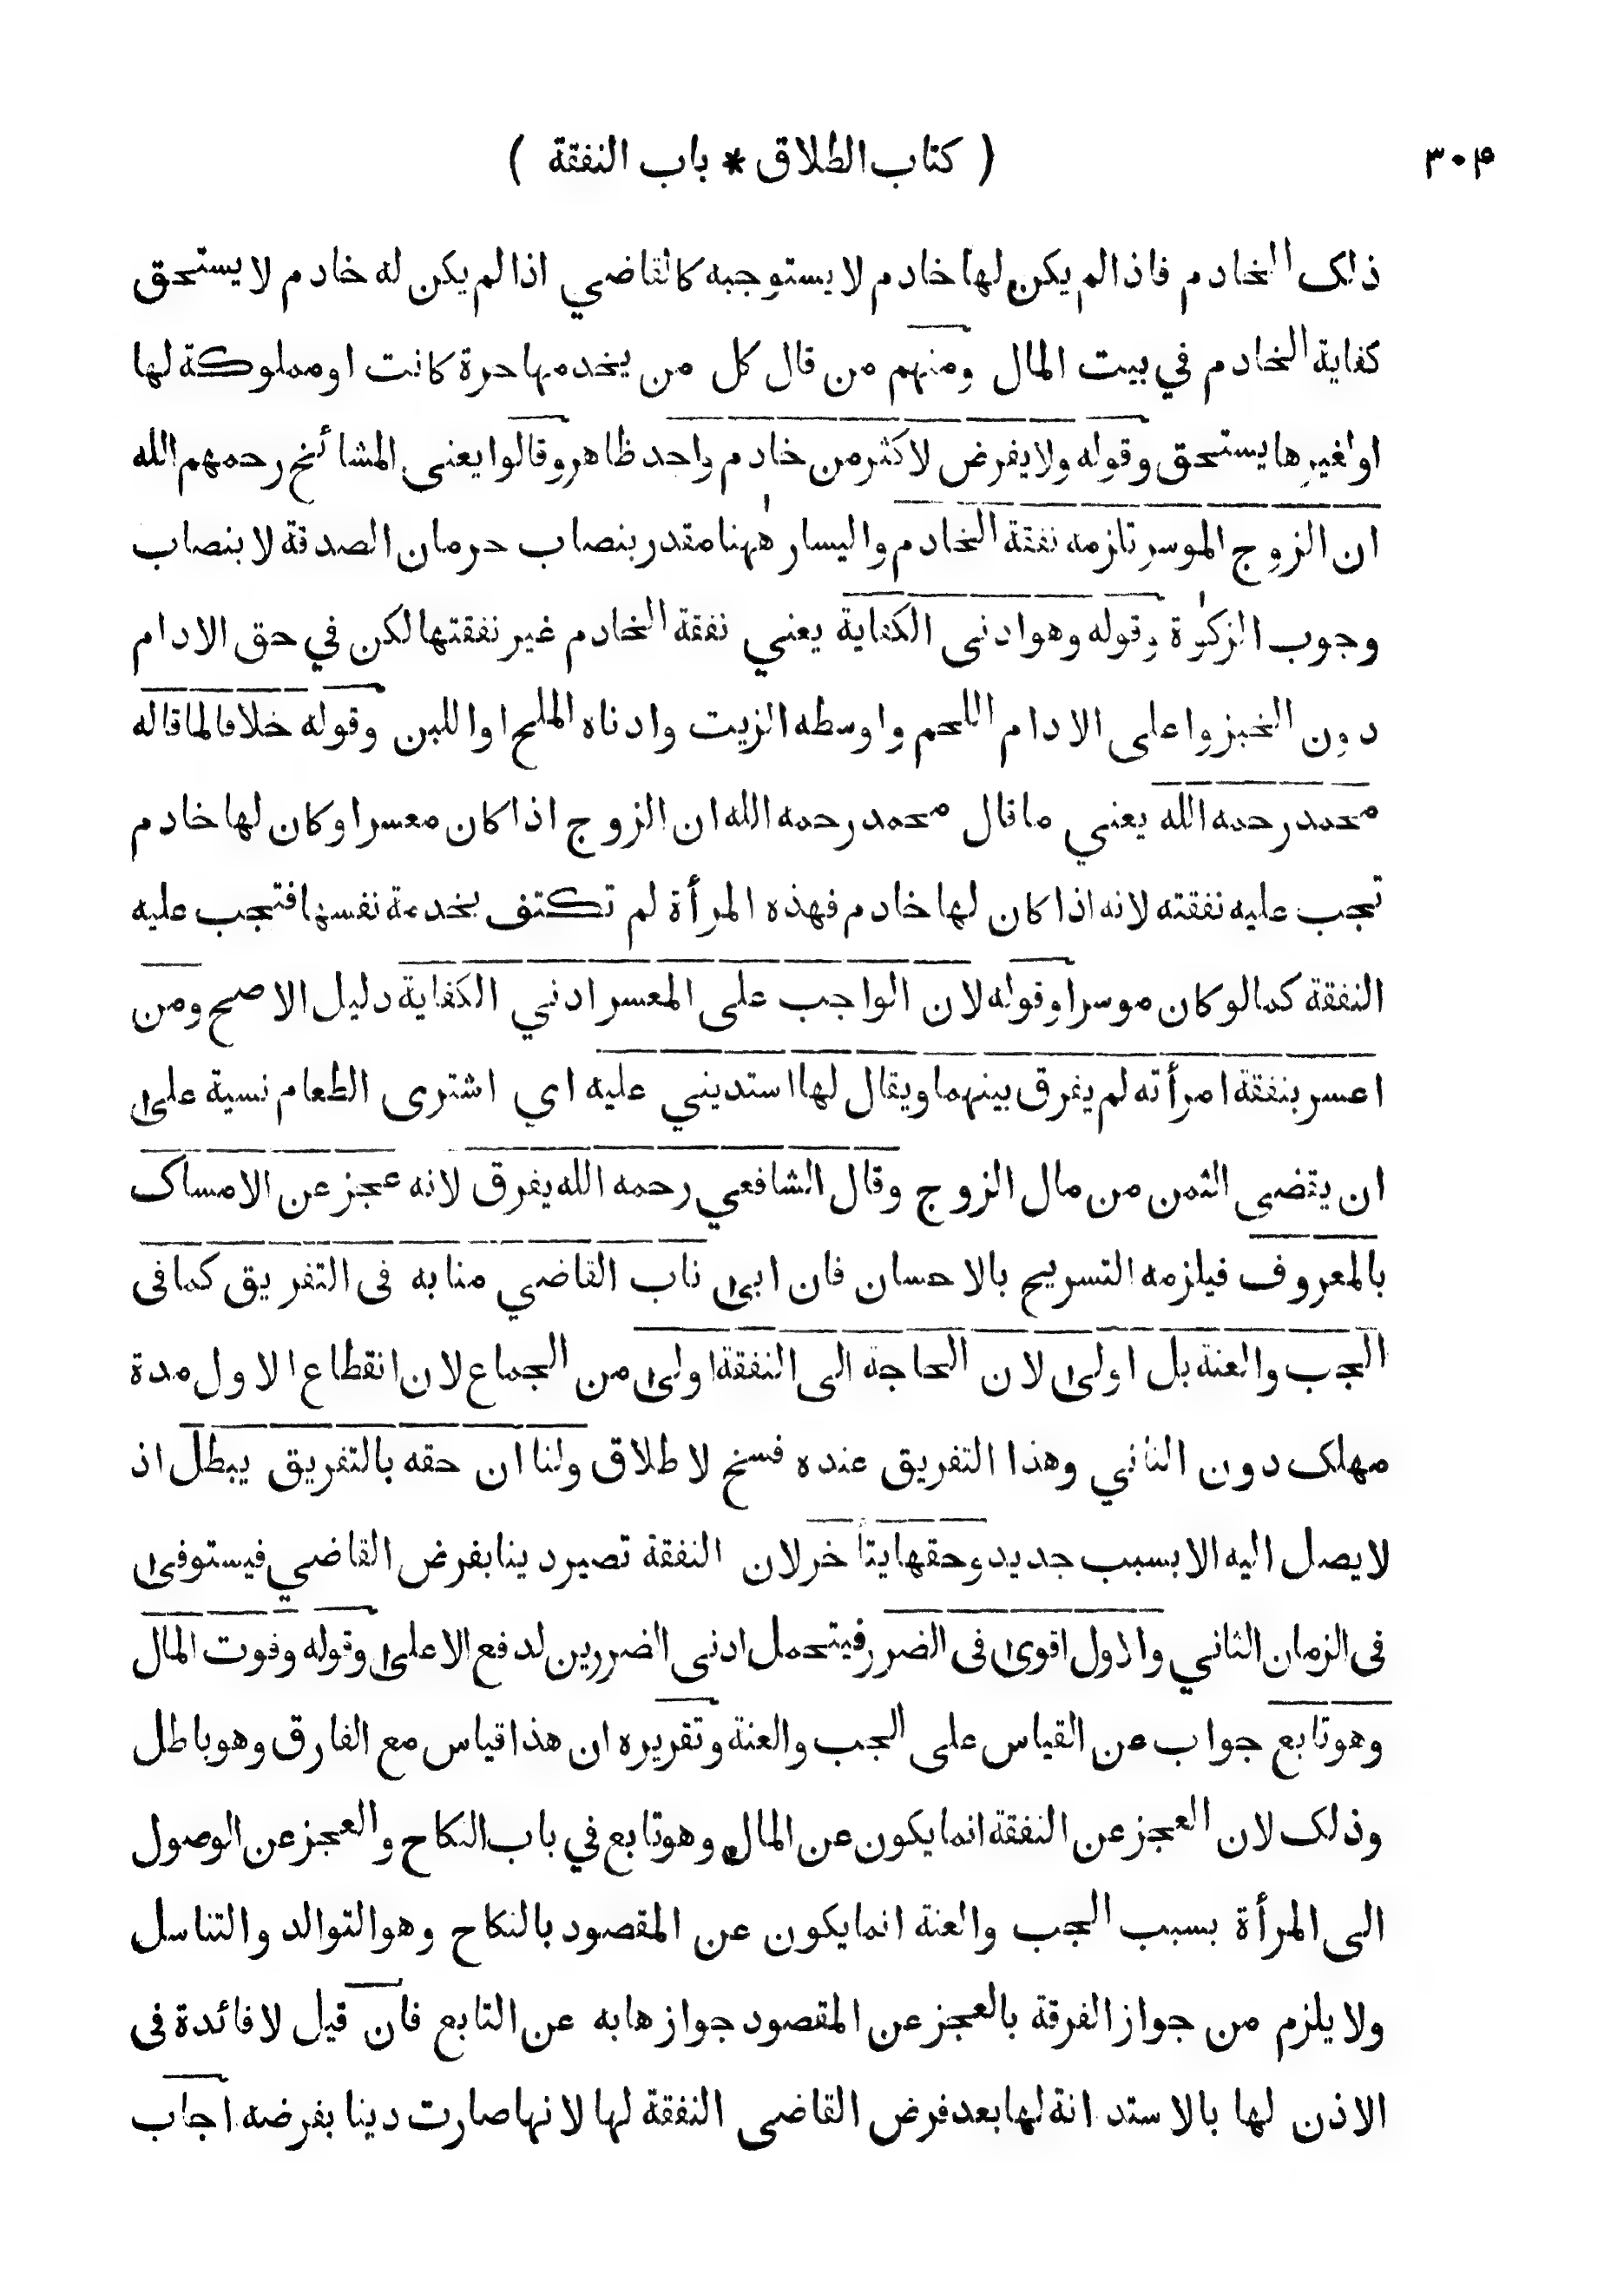 ( كتاب الطلاق * باب النفقة ) ۳۰۴
ذلك الخادم فاذا لم يكن لها خادم لا يستوجبه كالقاضي اذا لم يكن له خادم لا يستحق
كفاية الخادم في بيت المال ومنهم من قال كل من يخدمها حرة كانت او مملوكة لها
او لغيرها يستحق وقوله ولا يفرض لاكثر من خادم واحد ظاهر وقالوا يعنى المشائخ رحمهم الله
ان الزوج الموسر تلزمه نفقة الخادم واليسار ههنا مقدر بنصاب حرمان الصدقة لا بنصاب
وجوب الزكوة وقوله وهو ادنى الكفاية يعني نفقة الخادم غير نفقتها لكن في حق الادام
دون الخبز واعلى الادام اللحم واوسطه الزيت وادناه الملح او اللبن وقوله خلافا لما قاله
محمد رحمه الله يعني ما قال محمد رحمه الله ان الزوج اذا كان معسرا وكان لها خادم
تجب عليه نفقته لانه اذا كان لها خادم فهذه المرأة لم تكتف بخدمة نفسها فتجب عليه
النفقة كما لو كان موسرا وقوله لان الواجب على المعسر ادني الكفاية دليل الاصح ومن
اعسر بنفقة امرأته لم يفرق بينهما ويقال لها استديني عليه اي اشترى الطعام نسية على
ان يقضى الثمن من مال الزوج وقال الشافعي رحمه الله يفرق لانه عجز عن الامساك
بالمعروف فيلزمه التسريح بالاحسان فان ابى ناب القاضي منابه فى التفريق كما فى
الجب والعنة بل اولى لان الحاجة الى النفقة اولى من الجماع لان انقطاع الاول مدة
مهلك دون الثاني وهذا التفريق عنده فسخ لا طلاق ولنا ان حقه بالتفريق يبطل اذ
لا يصل اليه الا بسبب جديد وحقها يتأخر لان النفقة تصير دينا بفرض القاضي فيستوفى
فى الزمان الثاني والاول اقوى فى الضرر فيتحمل ادنى الضررين لدفع الاعلى وقوله وفوت المال
وهو تابع جواب عن القياس على الجب والعنة وتقريره ان هذا قياس مع الفارق وهو باطل
وذلك لان العجز عن النفقة انما يكون عن المال وهو تابع في باب النكاح والعجز عن الوصول
الى المرأة بسبب الجب والعنة انما يكون عن المقصود بالنكاح وهو التوالد والتناسل
ولا يلزم من جواز الفرقة بالعجز عن المقصود جوازها به عن التابع فان قيل لا فائدة فى
الاذن لها بالاستدانة لها بعد فرض القاضى النفقة لها لانها صارت دينا بفرضه اجاب